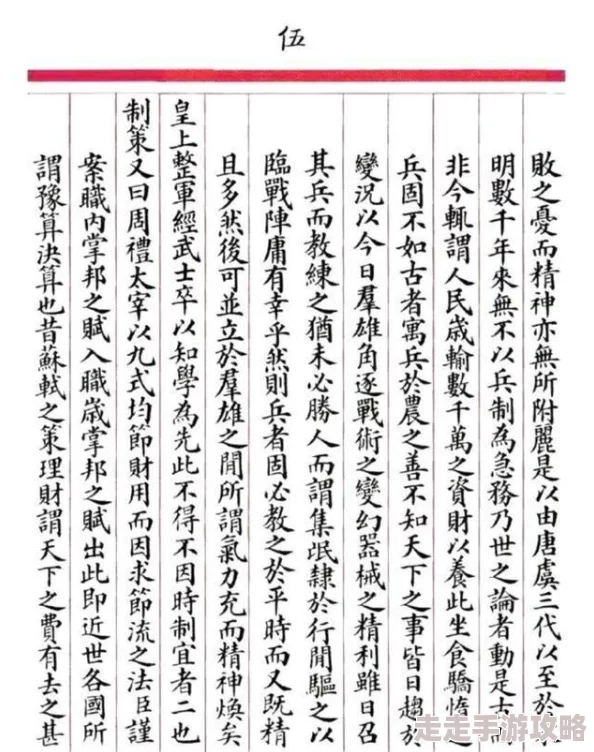 伍
敗之憂而精神亦無所附麗是以由唐虞三代以至於
明數千年來無不以兵制為急務乃世之論者動是古而
非今輒謂人民歲輸數千萬之資財以養此坐食驕惰之
兵固不如古者寓兵於農之善不知天下之事皆日趨於
變況以今日羣雄角逐戰術之變幻器械之精利雖日召
其兵而教練之猶未必勝人而謂集氓隸於行間驅之以
臨戰陣庸有幸乎然則兵者固必教之於平時而又既精
且多然後可並立於羣雄之間所謂氣力充而精神煥矣
皇上整軍經武士卒以知學為先此不得不因時制宜者二也
制策又曰周禮太宰以九式均節財用而因求節流之法臣謹
案職內掌邦之賦入職歲掌邦之賦出此即近世各國所
謂豫算決算也昔蘇軾之策理財謂天下之費有去之甚
走走手游攻略